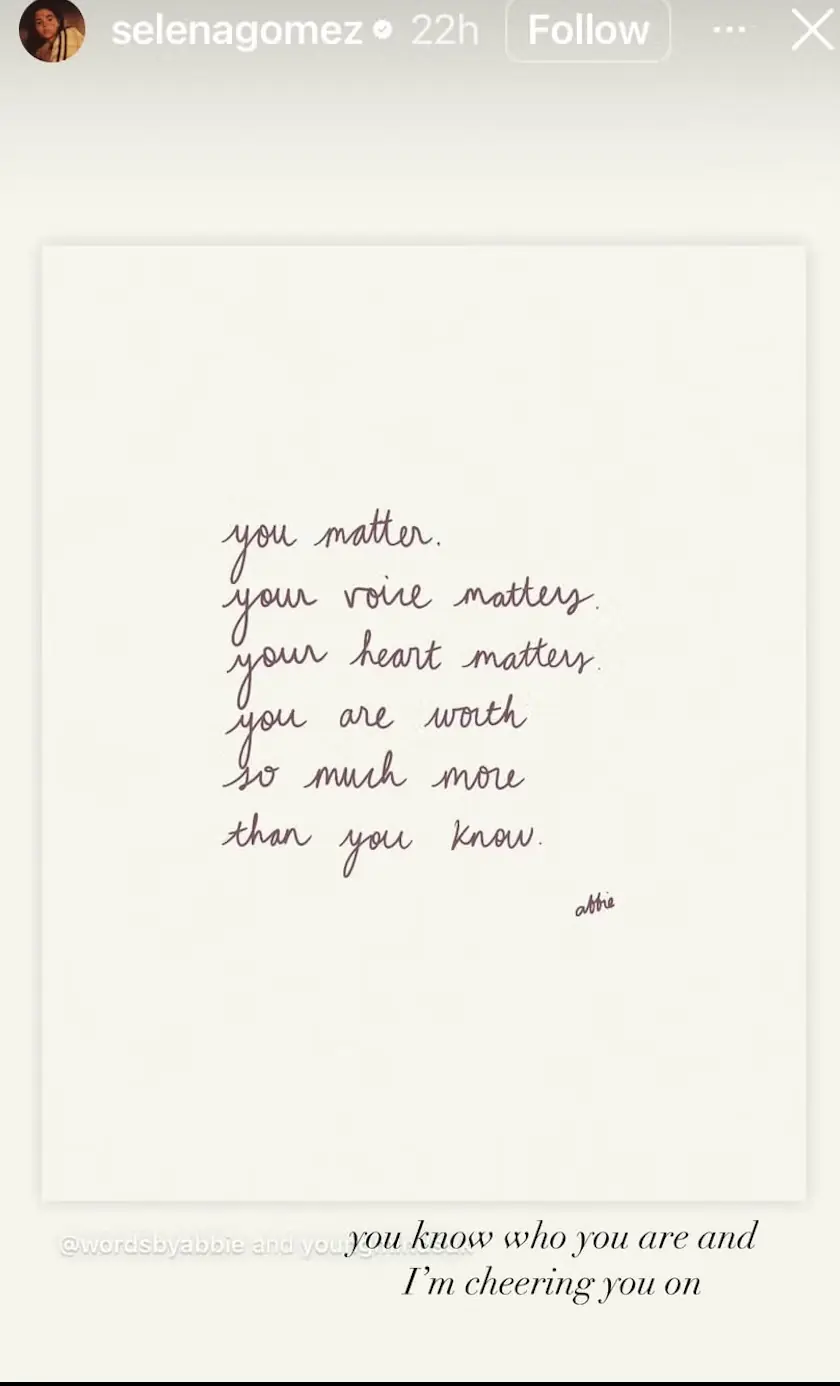 selenagomez 22h Follow
you matter.
your voice matters.
your heart matters.
you are worth
so much more
than you know.
abbie
@wordsbyabbie and
you know who you are and
I'm cheering you on